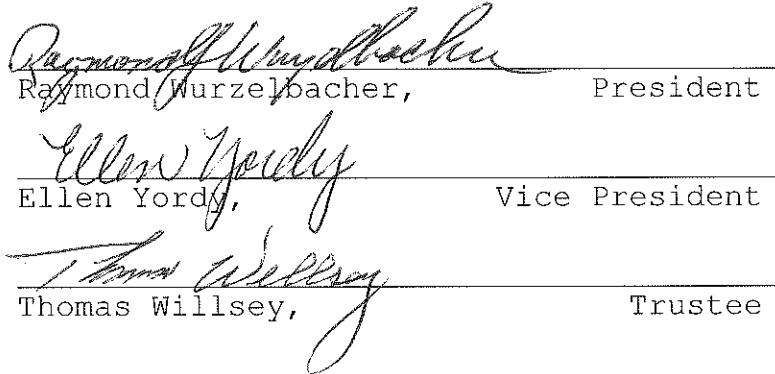 Raymond J Wurzelbacher
Raymond Wurzelbacher, President
Ellen Yordy
Ellen Yordy, Vice President
Thomas Willsey
Thomas Willsey, Trustee